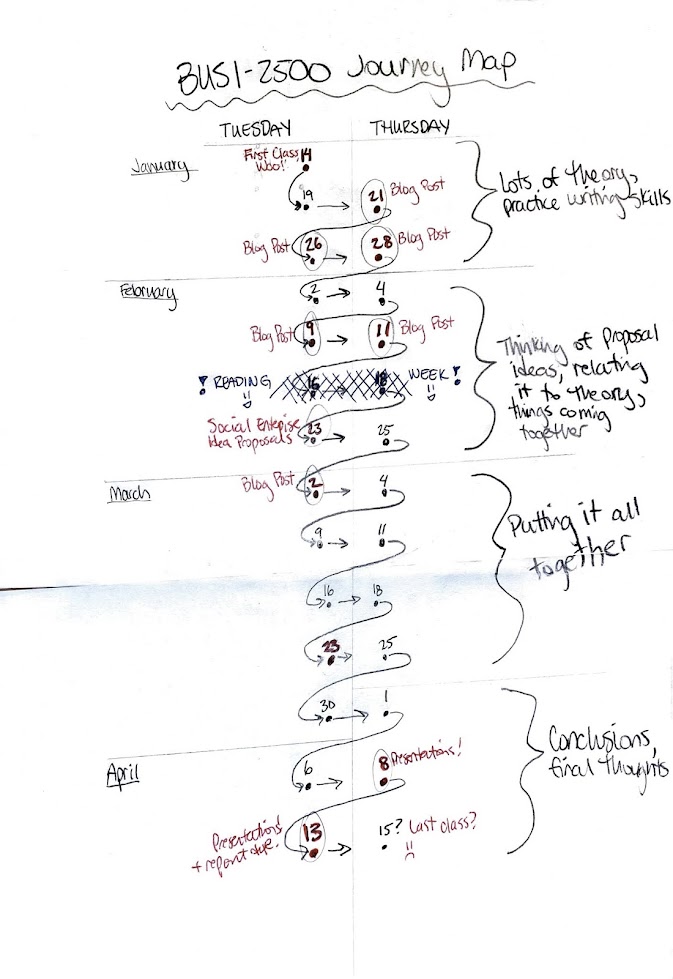 BUSI-2500 Journey Map
TUESDAY THURSDAY
January
First Class, 14
Woo!!
19 21 Blog Post
Lots of theory,
practice writing skills
Blog Post 26 28 Blog Post
February
2 4
Blog Post 9 11 Blog Post
Thinking of Proposal
ideas, relating
it to theory,
things coming
together
! READING 16 18 WEEK!
Social Enterpise 23 25
Idea Proposals
March
Blog Post 2 4
9 11
Putting it all
together
16 18
23 25
30 1
April
6 8 Presentations!
Conclusions,
final thoughts
Presentations! 13 15? Last class?
+ report due!